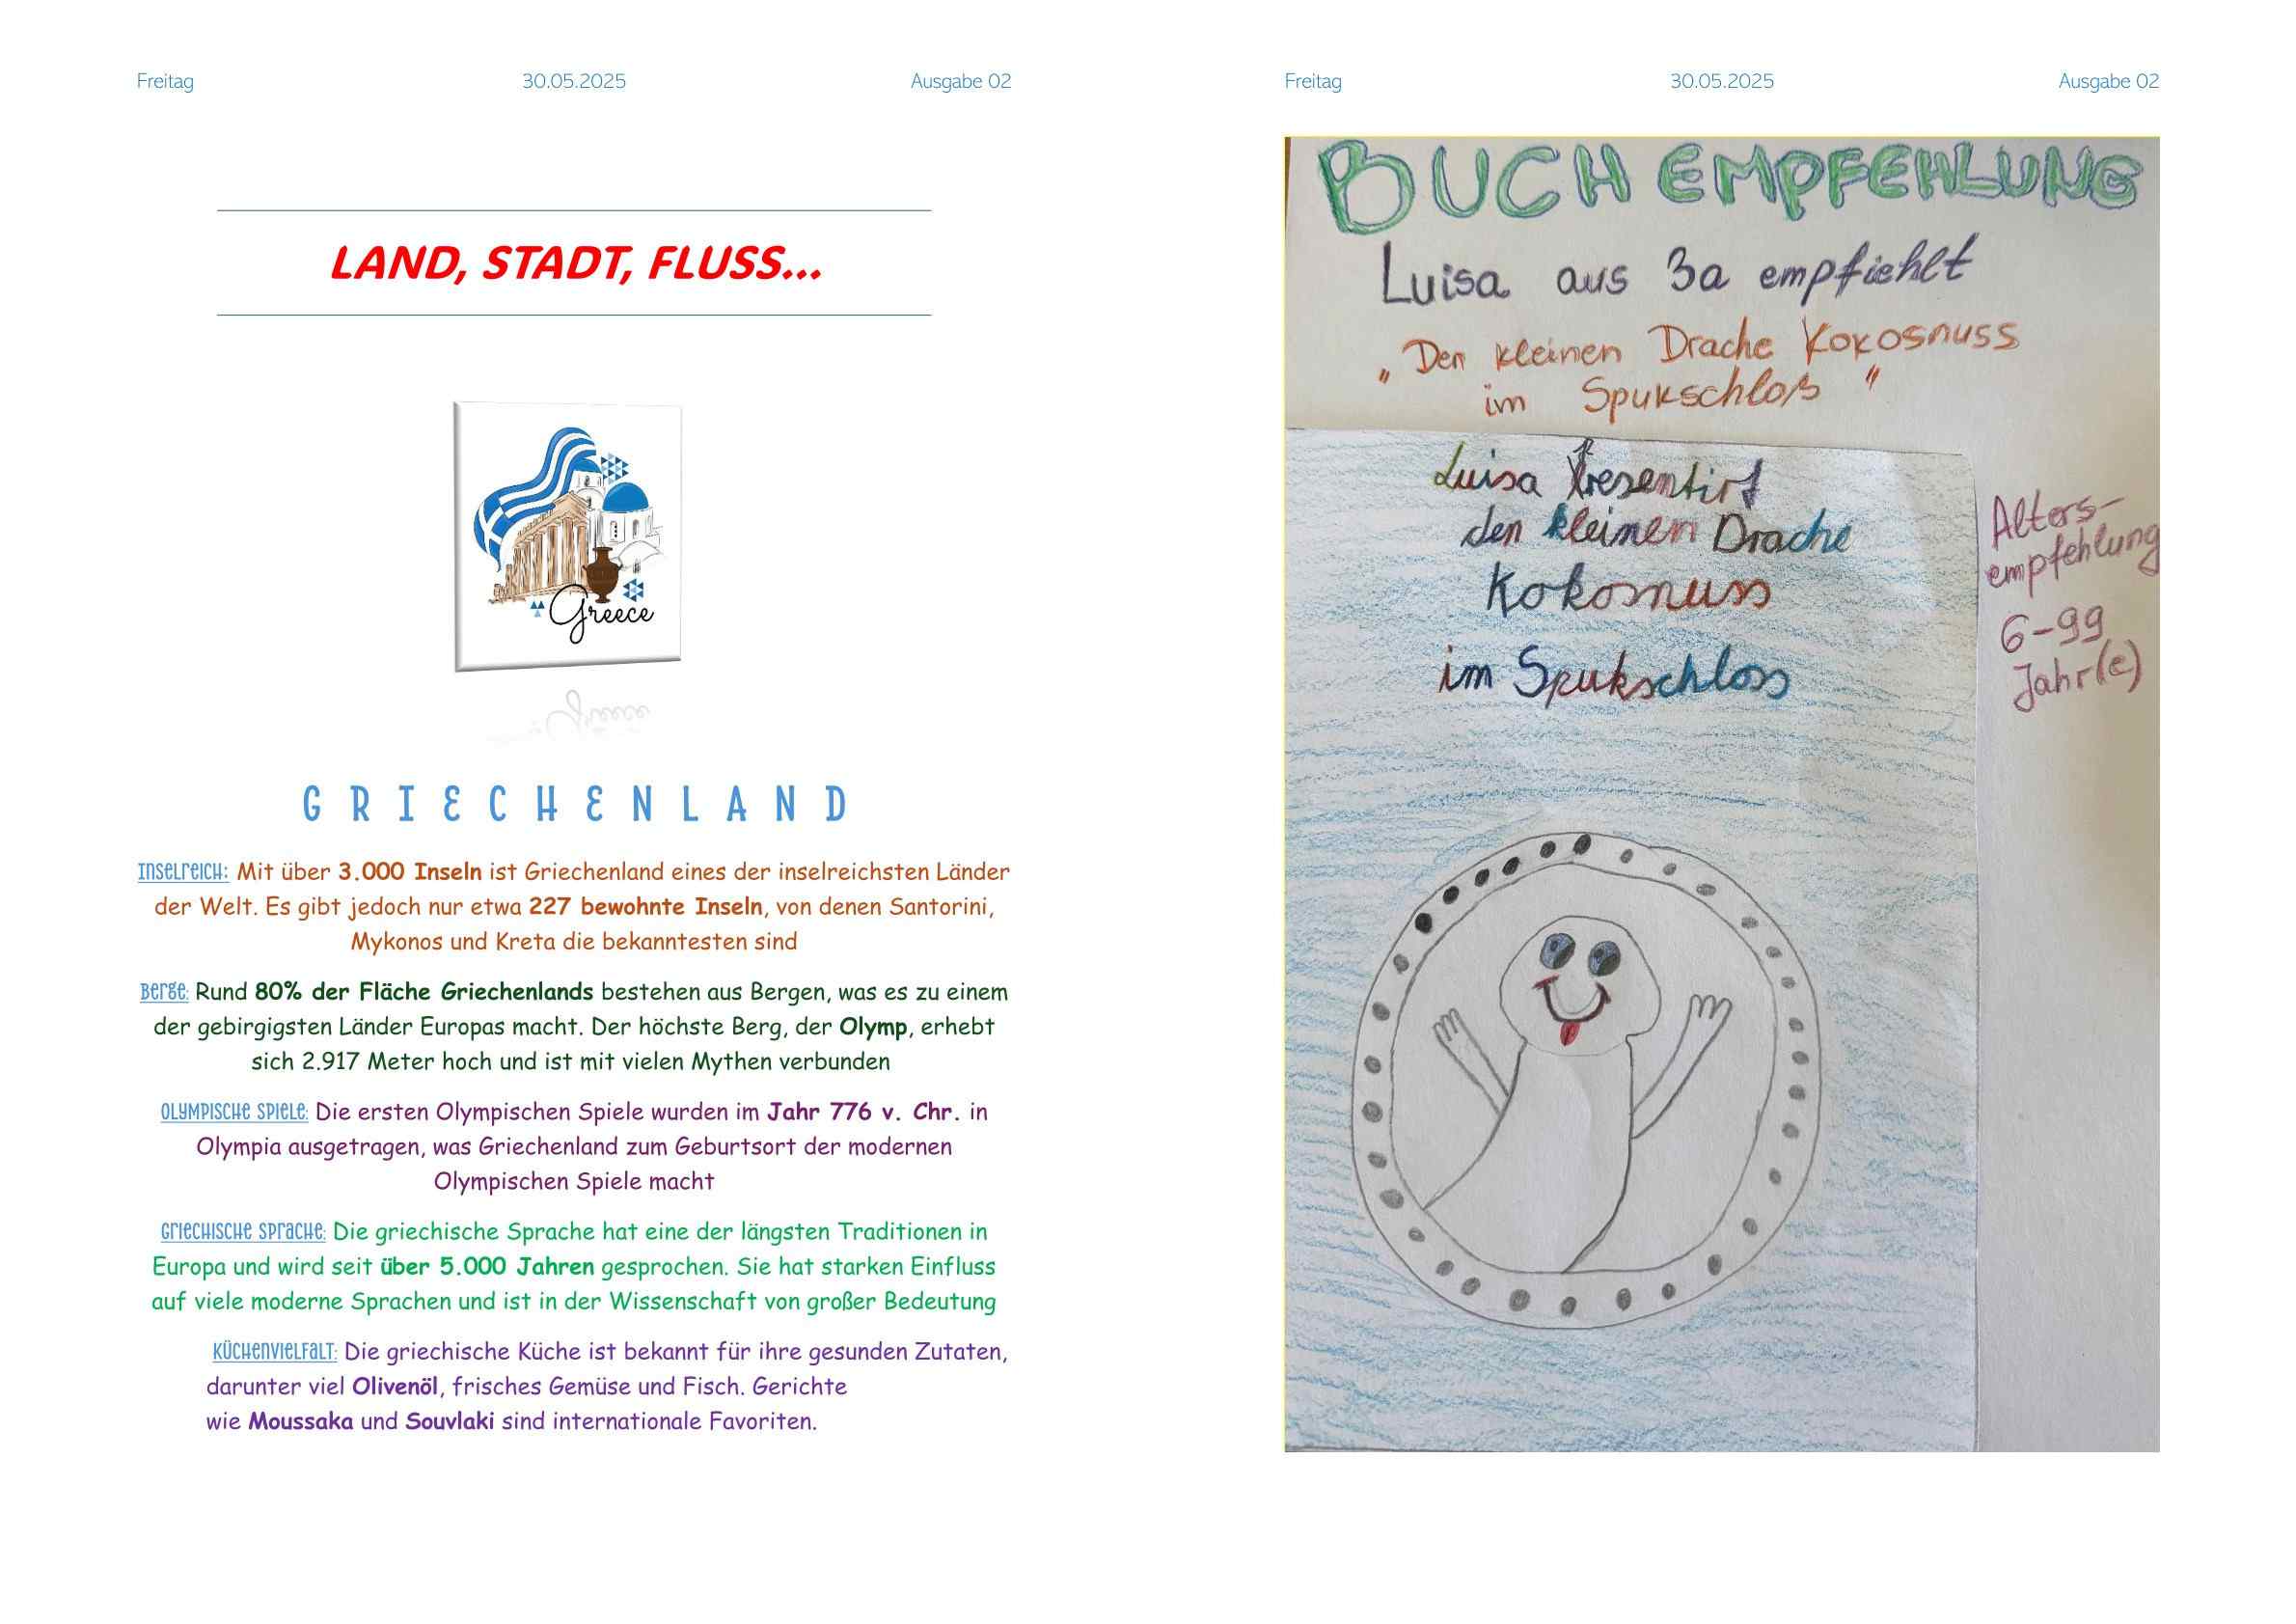 Freitag 30.05.2025 Ausgabe 02
LAND, STADT, FLUSS...
Greece
GRIECHENLAND
Inselreich: Mit über 3.000 Inseln ist Griechenland eines der inselreichsten Länder
der Welt. Es gibt jedoch nur etwa 227 bewohnte Inseln, von denen Santorini,
Mykonos und Kreta die bekanntesten sind
Berge: Rund 80% der Fläche Griechenlands bestehen aus Bergen, was es zu einem
der gebirgigsten Länder Europas macht. Der höchste Berg, der Olymp, erhebt
sich 2.917 Meter hoch und ist mit vielen Mythen verbunden
Olympische Spiele: Die ersten Olympischen Spiele wurden im Jahr 776 v. Chr. in
Olympia ausgetragen, was Griechenland zum Geburtsort der modernen
Olympischen Spiele macht
Griechische Sprache: Die griechische Sprache hat eine der längsten Traditionen in
Europa und wird seit über 5.000 Jahren gesprochen. Sie hat starken Einfluss
auf viele moderne Sprachen und ist in der Wissenschaft von großer Bedeutung
Küchenvielfalt: Die griechische Küche ist bekannt für ihre gesunden Zutaten,
darunter viel Olivenöl, frisches Gemüse und Fisch. Gerichte
wie Moussaka und Souvlaki sind internationale Favoriten.
Freitag 30.05.2025 Ausgabe 02
BUCH EMPFEHLUNG
Luisa aus 3a empfiehlt
„Den kleinen Drache Kokosnuss
im Spukschloß"
Luisa
den kleinen Drache
Kokosnuss
im Spukschloss
Alters-
empfehlung
6-99
Jahr(e)